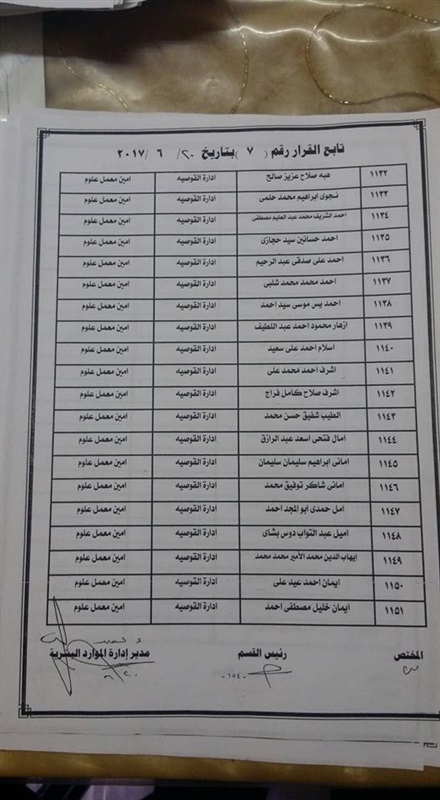 تابع القرار رقم ( ٧ ) بتاريخ ٢٠ / ٦ / ٢٠١٧
١١٣٢ هبه صلاح عزيز صالح ادارة القوصيه امين معمل علوم
١١٣٣ نجوى ابراهيم محمد حلمى ادارة القوصيه امين معمل علوم
١١٣٤ احمد الشريف محمد عبد العليم مصطفى ادارة القوصيه امين معمل علوم
١١٣٥ احمد حسانين سيد حجازى ادارة القوصيه امين معمل علوم
١١٣٦ احمد على صدقى عبد الرحيم ادارة القوصيه امين معمل علوم
١١٣٧ احمد محمد محمد شلبى ادارة القوصيه امين معمل علوم
١١٣٨ احمد يس موسى سيد احمد ادارة القوصيه امين معمل علوم
١١٣٩ ازهار محمود احمد عبد اللطيف ادارة القوصيه امين معمل علوم
١١٤٠ اسلام احمد على سعيد ادارة القوصيه امين معمل علوم
١١٤١ اشرف احمد محمد على ادارة القوصيه امين معمل علوم
١١٤٢ اشرف صلاح كامل فراج ادارة القوصيه امين معمل علوم
١١٤٣ الطيب شفيق حسن محمد ادارة القوصيه امين معمل علوم
١١٤٤ امال فتحى اسعد عبد الرازق ادارة القوصيه امين معمل علوم
١١٤٥ امانى ابراهيم سليمان سليمان ادارة القوصيه امين معمل علوم
١١٤٦ امانى شاكر توفيق محمد ادارة القوصيه امين معمل علوم
١١٤٧ امل حمدى ابو المجد احمد ادارة القوصيه امين معمل علوم
١١٤٨ اميل عبد التواب دوس بشاى ادارة القوصيه امين معمل علوم
١١٤٩ ايهاب الدين محمد الأمير محمد محمد ادارة القوصيه امين معمل علوم
١١٥٠ ايمان احمد عيد على ادارة القوصيه امين معمل علوم
١١٥١ ايمان خليل مصطفى احمد ادارة القوصيه امين معمل علوم
المختص رئيس القسم مدير إدارة الموارد البشرية